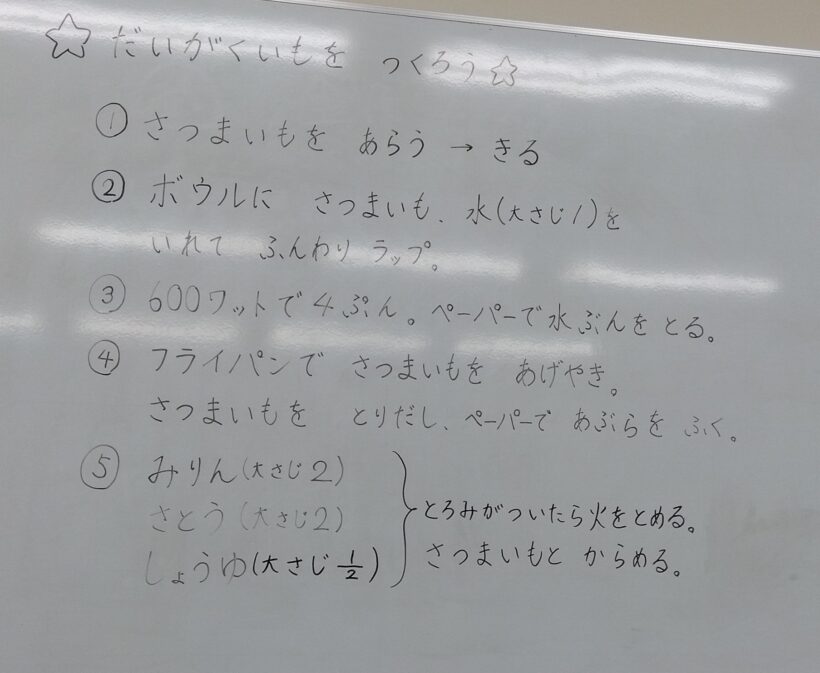 ☆だいがくいもを つくろう☆
① さつまいもを あらう → きる
② ボウルに さつまいも、水(大さじ1)を
いれて ふんわり ラップ。
③ 600ワットで4ぷん。ペーパーで水ぶんを とる。
④ フライパンで さつまいもを あげやき。
さつまいもを とりだし、ペーパーで あぶらを ふく。
⑤ みりん(大さじ2)
さとう(大さじ2)
しょうゆ(大さじ1/2)
とろみがついたら火をとめる。
さつまいもと からめる。